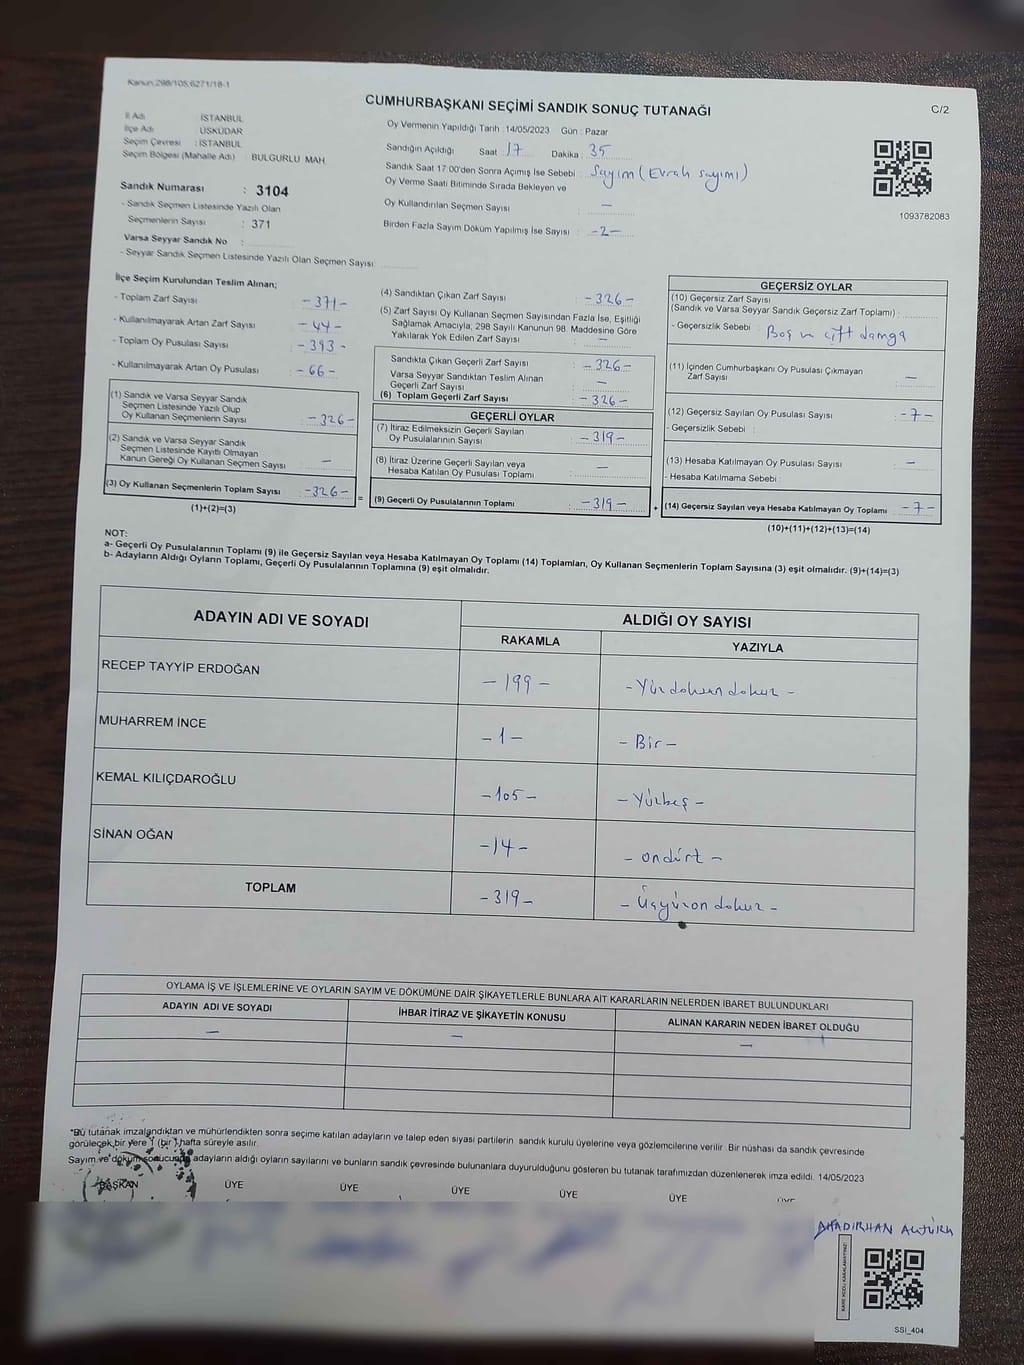 Kanun:298/105;6271/18-1
CUMHURBAŞKANI SEÇİMİ SANDIK SONUÇ TUTANAĞI
C/2
İl Adı İSTANBUL
İlçe Adı ÜSKÜDAR
Seçim Çevresi : İSTANBUL
Seçim Bölgesi (Mahalle Adı) : BULGURLU MAH.
Sandık Numarası : 3104
- Sandık Seçmen Listesinde Yazılı Olan
Seçmenlerin Sayısı : 371
Varsa Seyyar Sandık No :
- Seyyar Sandık Seçmen Listesinde Yazılı Olan Seçmen Sayısı:
Oy Vermenin Yapıldığı Tarih :14/05/2023 Gün : Pazar
Sandığın Açıldığı Saat 17 Dakika 35
Sandık Saat 17:00'den Sonra Açımış İse Sebebi : Sayım (Evrak sayımı)
Oy Verme Saati Bitiminde Sırada Bekleyen ve
Oy Kullandırılan Seçmen Sayısı : —
Birden Fazla Sayım Döküm Yapılmış İse Sayısı : -2-
1093782083
İlçe Seçim Kurulundan Teslim Alınan;
- Toplam Zarf Sayısı -371-
- Kullanılmayarak Artan Zarf Sayısı -44-
- Toplam Oy Pusulası Sayısı -393-
- Kullanılmayarak Artan Oy Pusulası -66-
(1) Sandık ve Varsa Seyyar Sandık
Seçmen Listesinde Yazılı Olup
Oy Kullanan Seçmenlerin Sayısı -326-
(2) Sandık ve Varsa Seyyar Sandık
Seçmen Listesinde Kayıtlı Olmayan
Kanun Gereği Oy Kullanan Seçmen Sayısı —
(3) Oy Kullanan Seçmenlerin Toplam Sayısı -326-
(1)+(2)=(3)
(4) Sandıktan Çıkan Zarf Sayısı : -326-
(5) Zarf Sayısı Oy Kullanan Seçmen Sayısından Fazla İse, Eşitliği
Sağlamak Amacıyla; 298 Sayılı Kanunun 98. Maddesine Göre
Yakılarak Yok Edilen Zarf Sayısı : —
Sandıkta Çıkan Geçerli Zarf Sayısı : -326-
Varsa Seyyar Sandıktan Teslim Alınan
Geçerli Zarf Sayısı : —
(6) Toplam Geçerli Zarf Sayısı : -326-
=
GEÇERLİ OYLAR
(7) İtiraz Edilmeksizin Geçerli Sayılan
Oy Pusulalarının Sayısı : -319-
(8) İtiraz Üzerine Geçerli Sayılan veya
Hesaba Katılan Oy Pusulası Toplamı : —
(9) Geçerli Oy Pusulalarının Toplamı : -319-
+
GEÇERSİZ OYLAR
(10) Geçersiz Zarf Sayısı
(Sandık ve Varsa Seyyar Sandık Geçersiz Zarf Toplamı) :
- Geçersizlik Sebebi : Boş ve çift damga
(11) İçinden Cumhurbaşkanı Oy Pusulası Çıkmayan
Zarf Sayısı : —
(12) Geçersiz Sayılan Oy Pusulası Sayısı : -7-
- Geçersizlik Sebebi :
(13) Hesaba Katılmayan Oy Pusulası Sayısı : —
- Hesaba Katılmama Sebebi :
(14) Geçersiz Sayılan veya Hesaba Katılmayan Oy Toplamı -7-
(10)+(11)+(12)+(13)=(14)
NOT:
a- Geçerli Oy Pusulalarının Toplamı (9) ile Geçersiz Sayılan veya Hesaba Katılmayan Oy Toplamı (14) Toplamları, Oy Kullanan Seçmenlerin Toplam Sayısına (3) eşit olmalıdır. (9)+(14)=(3)
b- Adayların Aldığı Oyların Toplamı, Geçerli Oy Pusulalarının Toplamına (9) eşit olmalıdır.
ADAYIN ADI VE SOYADI ALDIĞI OY SAYISI
RAKAMLA YAZIYLA
RECEP TAYYİP ERDOĞAN -199- -Yüzdoksandokuz-
MUHARREM İNCE -1- -Bir-
KEMAL KILIÇDAROĞLU -105- -Yüzbeş-
SİNAN OĞAN -14- -ondört-
TOPLAM -319- -Üçyüzondokuz-
OYLAMA İŞ VE İŞLEMLERİNE VE OYLARIN SAYIM VE DÖKÜMÜNE DAİR ŞİKAYETLERLE BUNLARA AİT KARARLARIN NELERDEN İBARET BULUNDUKLARI
ADAYIN ADI VE SOYADI İHBAR İTİRAZ VE ŞİKAYETİN KONUSU ALINAN KARARIN NEDEN İBARET OLDUĞU
— — —
*Bu tutanak imzalandıktan ve mühürlendikten sonra seçime katılan adayların ve talep eden siyasi partilerin sandık kurulu üyelerine veya gözlemcilerine verilir. Bir nüshası da sandık çevresinde
görülecek bir yere 1 (bir ) hafta süreyle asılır.
Sayım ve döküm sonucunda adayların aldığı oyların sayılarını ve bunların sandık çevresinde bulunanlara duyurulduğunu gösteren bu tutanak tarafımızdan düzenlenerek imza edildi. 14/05/2023
BAŞKAN ÜYE ÜYE ÜYE ÜYE ÜYE
SSI_404